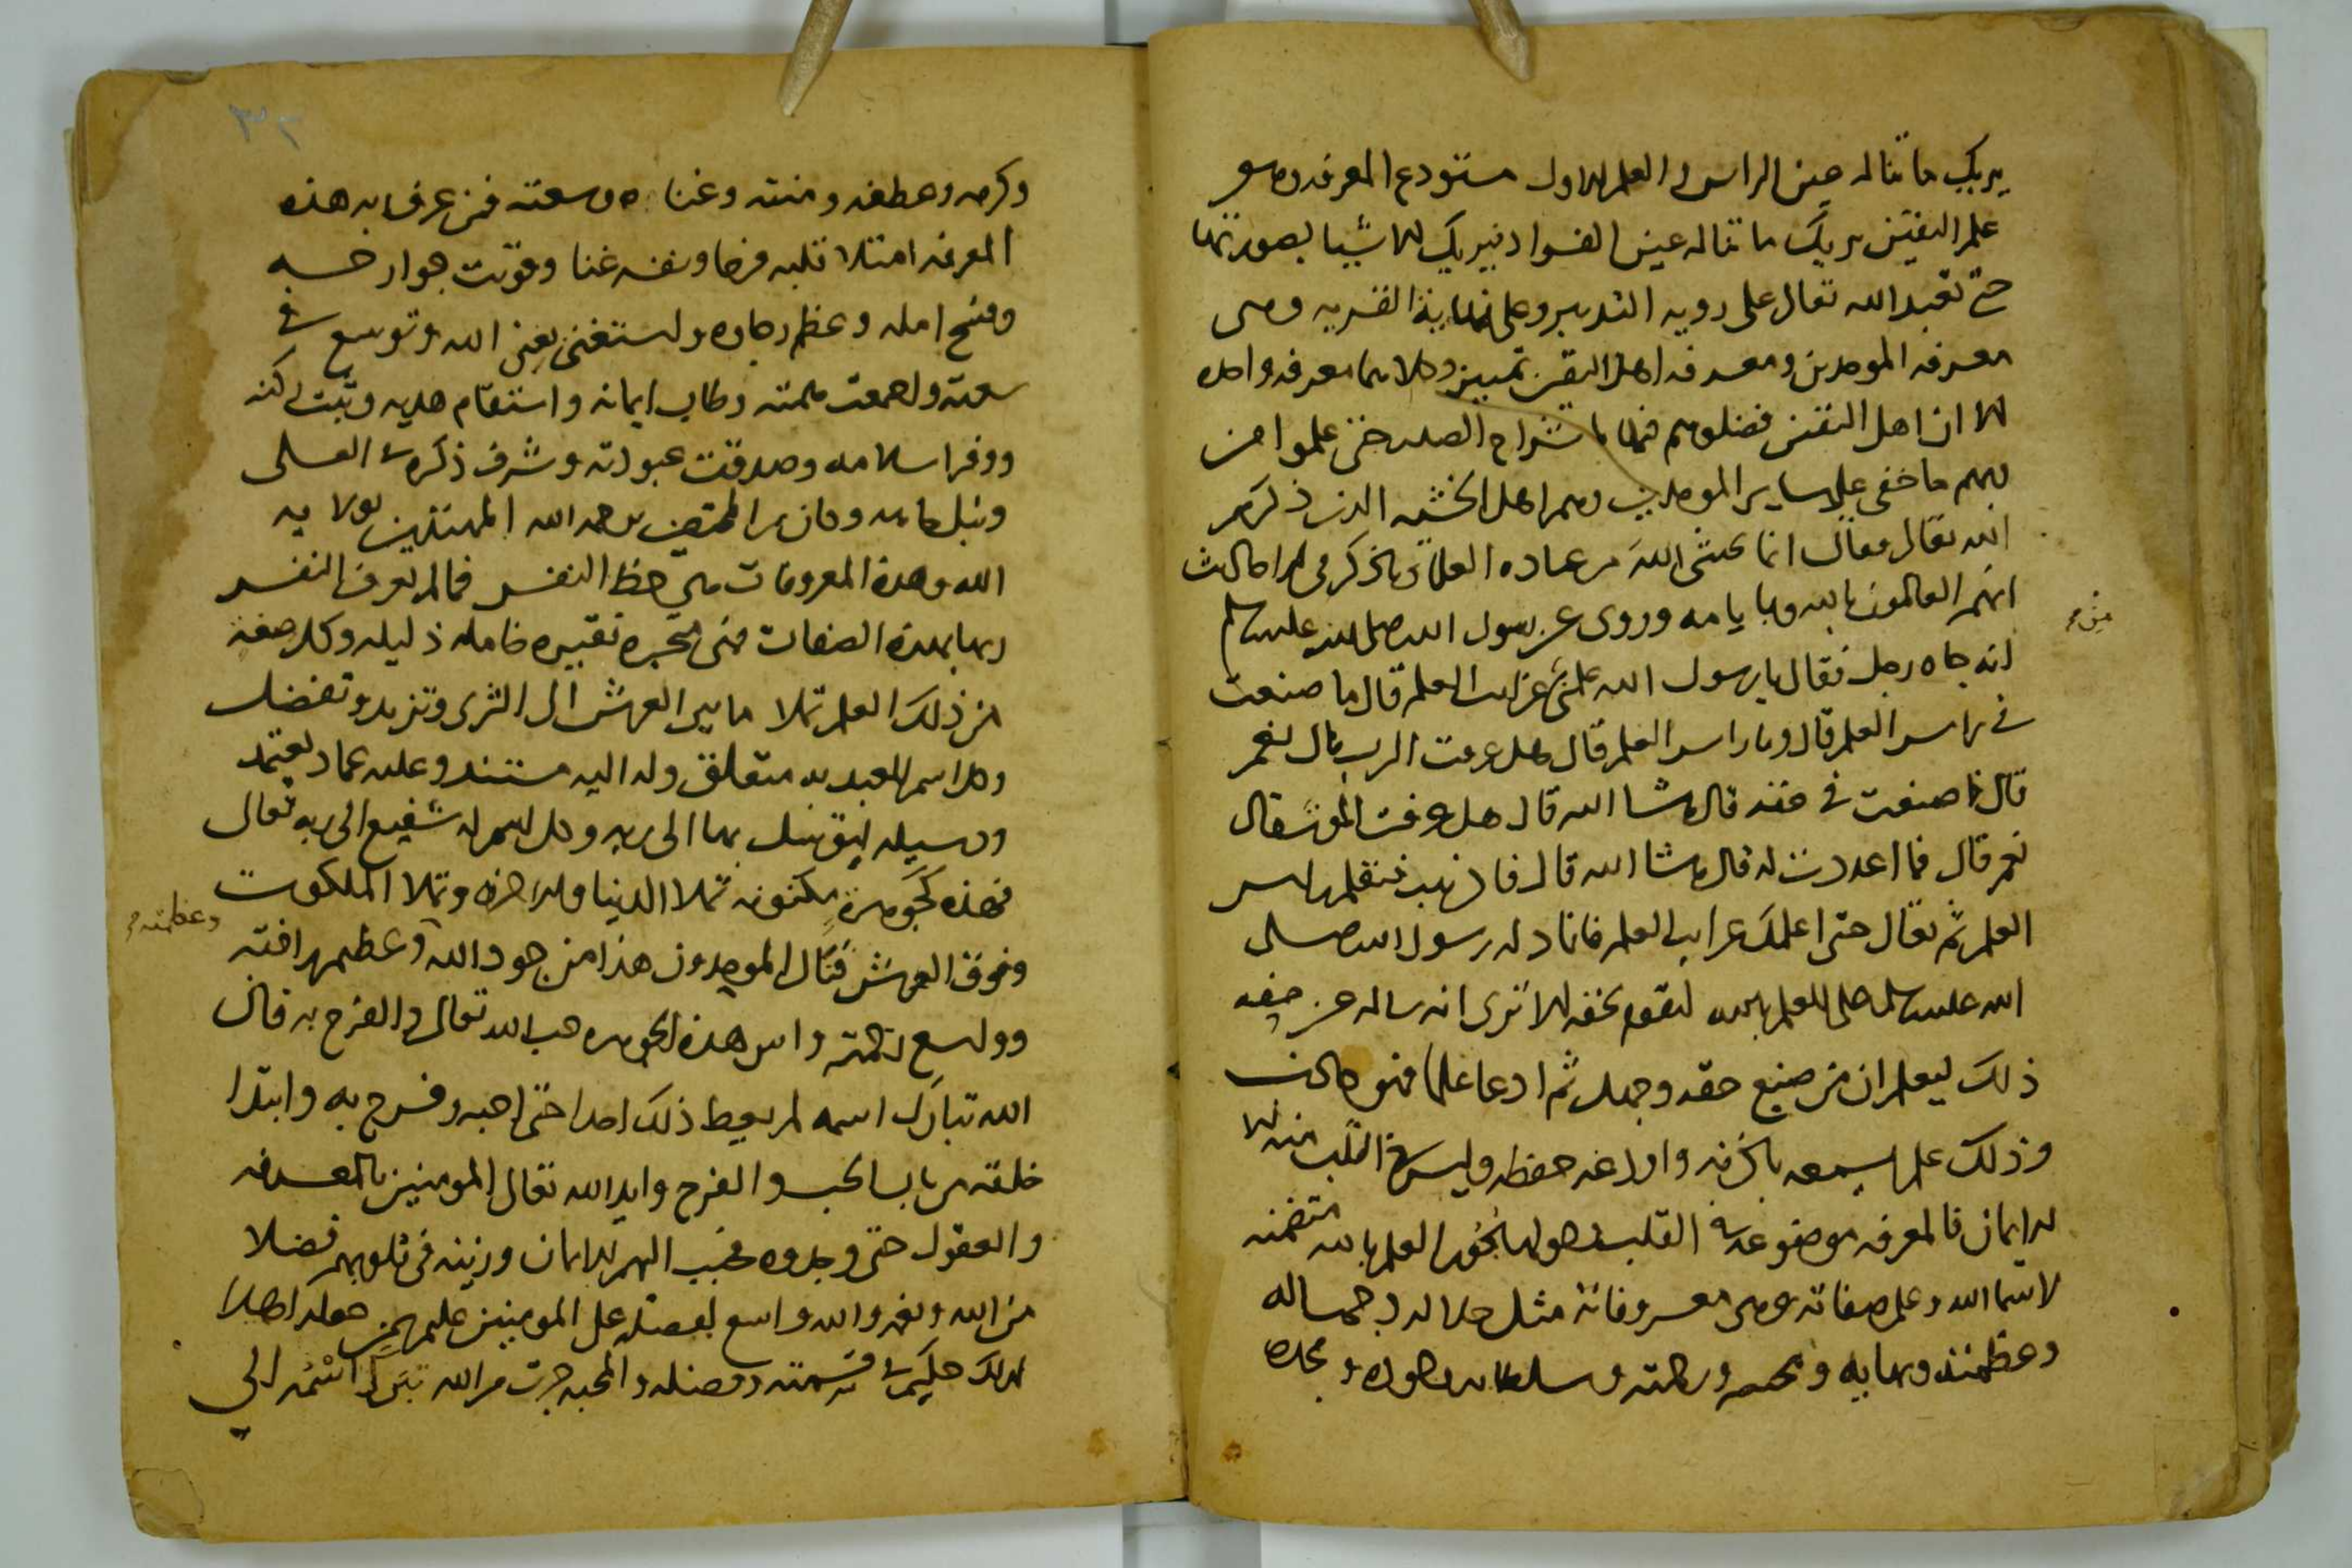 يريك ما تناله عين الراس والعلم الاول مستودع المعرفة وهو
علم اليقين يريك ما تناله عين الفواد فيريك الاشيا بصورتها
حتى تعبد الله تعالى على روية التدبير وعلى نهاية الفردية وهي
معرفة الموحدين ومعرفة اهل اليقين تمييز وكلاهما معرفة واحدة
الا ان اهل اليقين فضلوهم فيها بانشراح الصدر حتى علموا من
ربهم ما خفى على ساير الموحدين وهم اهل الخشية الذين ذكرهم
الله تعالى فقال انما يخشى الله من عباده العلما
انهم العالمون بالله وبايامه وروى عن رسول الله صلى الله عليه وسلم
من
انه جاه رجل فقال يا رسول الله علمني غرايب العلم قال ما صنعت
في راس العلم قال وما راس العلم قال هل عرفت الرب قال نعم
قال فما صنعت في حقه قال ما شا الله قال هل عرفت الموت قال
نعم قال فما اعددت له قال ما شا الله قال فاذهب فتعلم راس
العلم ثم تعال حتى اعلمك غرايب العلم فانما دله رسول الله صلى
الله عليه وسلم على العلم بالله ليقوم بحقه الا ترى انه ساله عن حقه
ذلك ليعلم ان من ضيع حقه وجهل ثم ادعا علما فهو كاذب
وذلك علم يسمعه باذنه واودعه حفظه وليس في القلب منه الا
الايمان فالمعرفة موضوعة في القلب العلم بالله متضمنه
لاسما الله وعلم صفاته وهي معروفاته مثل جلاله وجماله
وعظمته وبهايه ورحمته وسلطانه وجوده ومجده
وكرمه وعطفه ومنته وغناه وسعته فمن عرف به هذه
المعرفة امتلا قلبه فرحا ونفسه غنا وقويت جوارحه
وفسح امله وعظم رجاوه واستغنى بغنى الله وتوسع في
سعته واجمعت همته وطاب ايمانه واستقام هديه وثبت ركنه
ووفر اسلامه وصدقت عبودته وشرف ذكره في العلى
ونبل وكان من الله المهتدين بولاية
الله وهذه المعروفات هي حظ النفس فما لم تعرف النفس
ربها بهذه الصفات فهي فقيرة خاملة ذليلة وكل صفة
من ذلك العلم تملا ما بين العرش الى الثرى وتزيد وتفضل
وكل اسم للعبد به متعلق وله اليه مستند وعليه عماد يعتمد
ووسيلة يتوسل بها الى ربه وكل اسم له شفيع الى ربه تعالى
فهذه كجوهرة مكنونة تملا الدنيا والاخرة وتملا الملكوت
وعظمته
وفوق العرش فنال الموحدون هذا من جود الله وعظيم رافته
وواسع رحمته واس هذه الجوهرة حب الله تعالى والفرح به فان
الله تبارك اسمه لم يعط ذلك احدا حتى احبه وفرح به وابتدا
خلقته من باب الحب والفرح وايد الله تعالى المومنين بالمعرفة
والعقول حتى وجدوه فحبب اليهم الايمان وزينه في قلوبهم فضلا
من الله ونعمة والله واسع بفضله على المومنين عليم بمن جعله اهلا
لذلك حكيم في قسمته وفضله والمحبة جرت من الله تبارك اسمه الى
٣٢